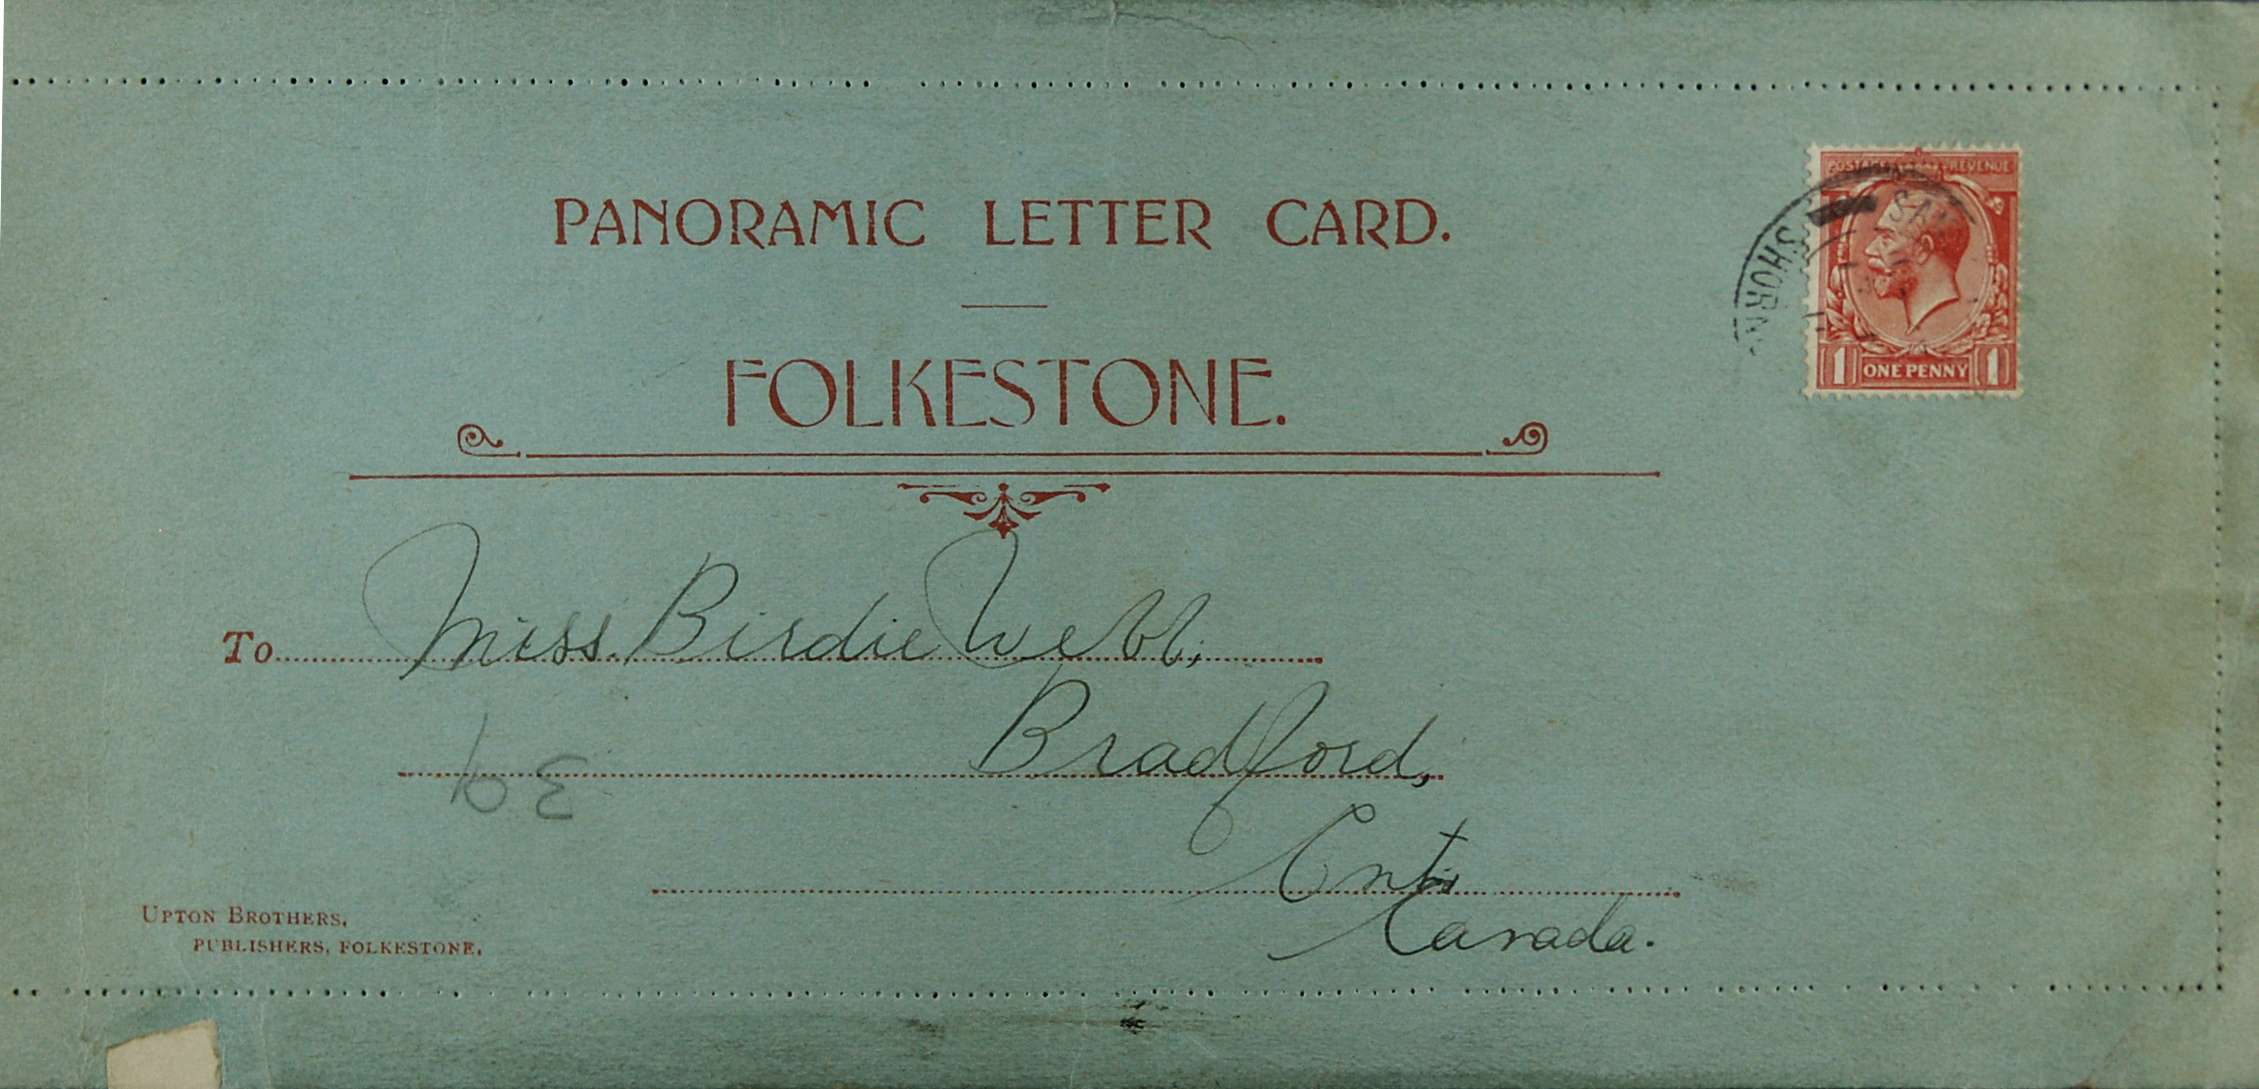 PANORAMIC LETTER CARD.
POSTAGE REVENUE
SHORN
ONE PENNY
1 1
FOLKESTONE.
To Miss. Birdie Webb,
Bradford,
Ont.
Canada.
UPTON BROTHERS,
PUBLISHERS, FOLKESTONE.